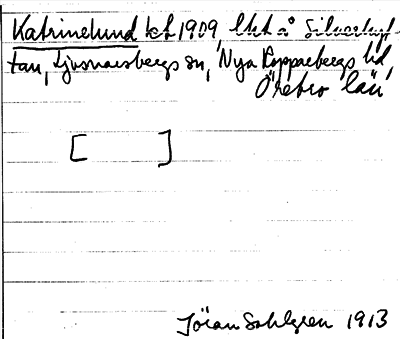 Katrinelund kt 1909, lht å Silverhyt-
tan, Ljusnarsbergs sn, Nya Kopparbergs hd,
Örebro län
[ ]
Jöran Sahlgren 1913